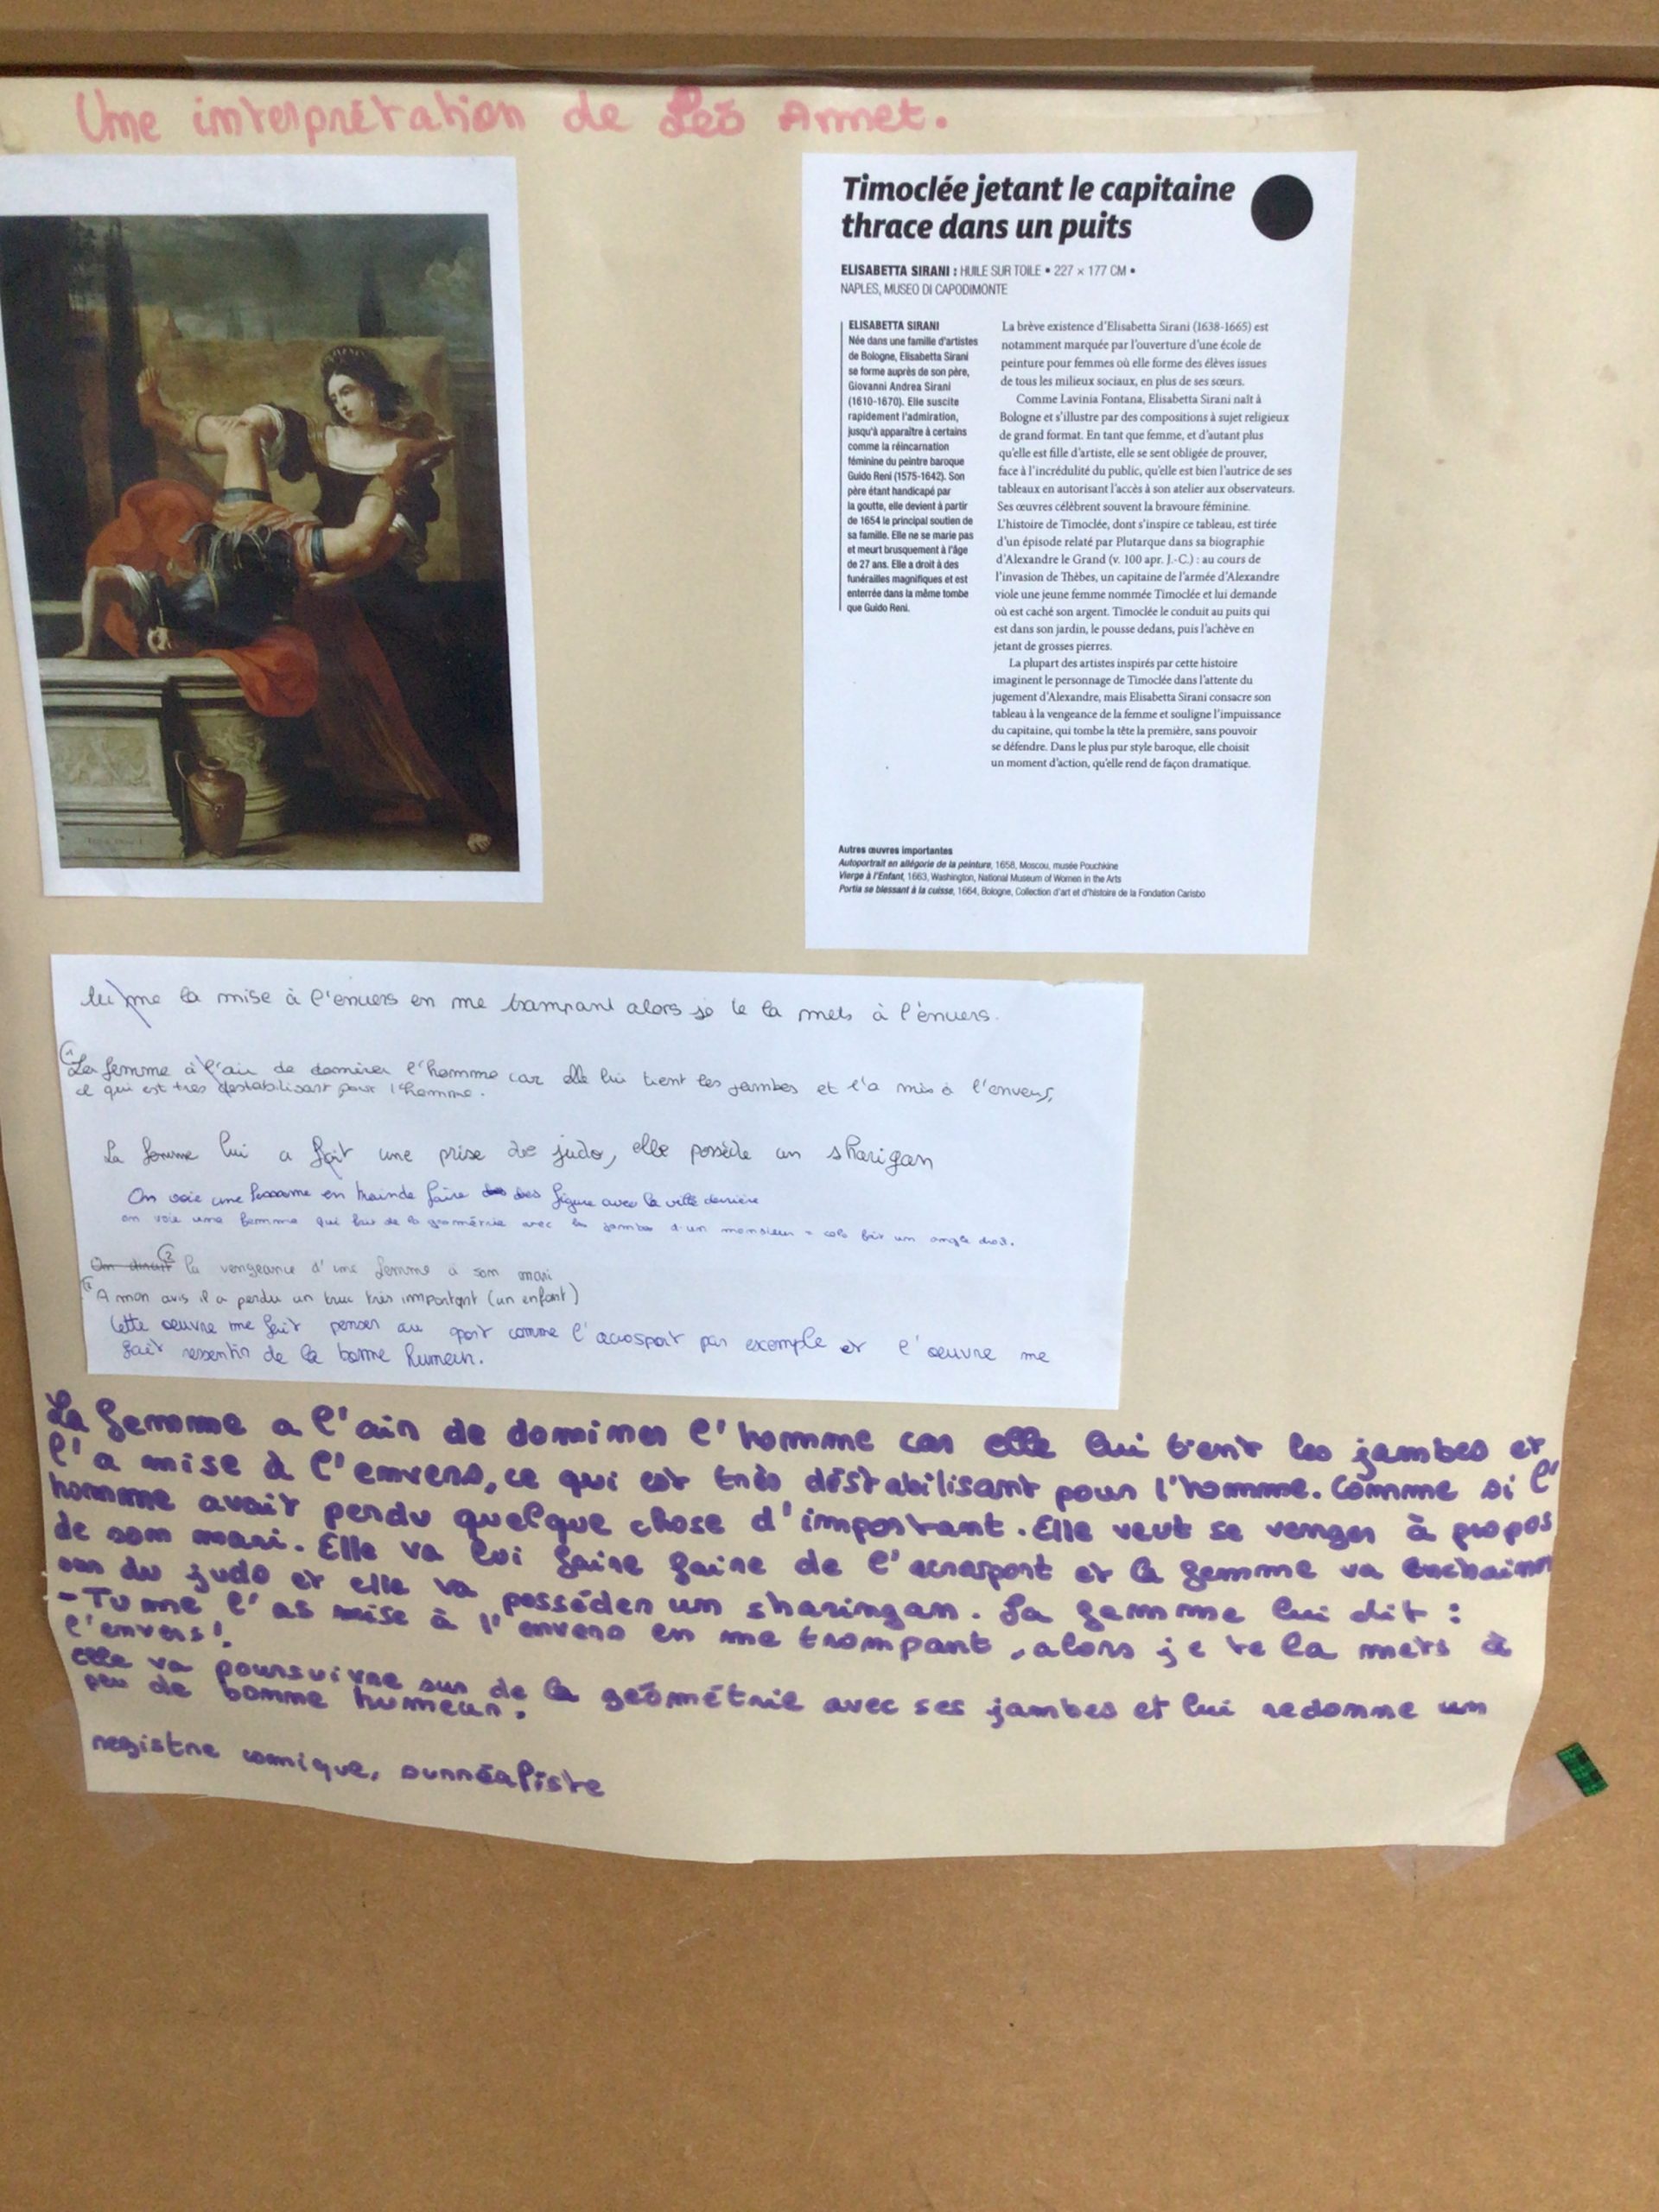 Une interprétation de Léo Armet.
Timoclée jetant le capitaine
thrace dans un puits
ELISABETTA SIRANI : HUILE SUR TOILE • 227 × 177 CM •
NAPLES, MUSEO DI CAPODIMONTE
ELISABETTA SIRANI
Née dans une famille d'artistes
de Bologne, Elisabetta Sirani
se forme auprès de son père,
Giovanni Andrea Sirani
(1610-1670). Elle suscite
rapidement l'admiration,
jusqu'à apparaître à certains
comme la réincarnation
féminine du peintre baroque
Guido Reni (1575-1642). Son
père étant handicapé par
la goutte, elle devient à partir
de 1654 le principal soutien de
sa famille. Elle ne se marie pas
et meurt brusquement à l'âge
de 27 ans. Elle a droit à des
funérailles magnifiques et est
enterrée dans la même tombe
que Guido Reni.
La brève existence d'Elisabetta Sirani (1638-1665) est
notamment marquée par l'ouverture d'une école de
peinture pour femmes où elle forme des élèves issues
de tous les milieux sociaux, en plus de ses sœurs.
Comme Lavinia Fontana, Elisabetta Sirani naît à
Bologne et s'illustre par des compositions à sujet religieux
de grand format. En tant que femme, et d'autant plus
qu'elle est fille d'artiste, elle se sent obligée de prouver,
face à l'incrédulité du public, qu'elle est bien l'autrice de ses
tableaux en autorisant l'accès à son atelier aux observateurs.
Ses œuvres célèbrent souvent la bravoure féminine.
L'histoire de Timoclée, dont s'inspire ce tableau, est tirée
d'un épisode relaté par Plutarque dans sa biographie
d'Alexandre le Grand (v. 100 apr. J.-C.) : au cours de
l'invasion de Thèbes, un capitaine de l'armée d'Alexandre
viole une jeune femme nommée Timoclée et lui demande
où est caché son argent. Timoclée le conduit au puits qui
est dans son jardin, le pousse dedans, puis l'achève en
jetant de grosses pierres.
La plupart des artistes inspirés par cette histoire
imaginent le personnage de Timoclée dans l'attente du
jugement d'Alexandre, mais Elisabetta Sirani consacre son
tableau à la vengeance de la femme et souligne l'impuissance
du capitaine, qui tombe la tête la première, sans pouvoir
se défendre. Dans le plus pur style baroque, elle choisit
un moment d'action, qu'elle rend de façon dramatique.
Autres œuvres importantes
Autoportrait en allégorie de la peinture, 1658, Moscou, musée Pouchkine
Vierge à l'Enfant, 1663, Washington, National Museum of Women in the Arts
Portia se blessant à la cuisse, 1664, Bologne, Collection d'art et d'histoire de la Fondation Carisbo
me la mise à l'envers en me trampant alors je te la mets à l'envers.
La femme à l'air de dominer l'homme car elle lui tient les jambes et l'a mis à l'envers,
ce qui est très destabilisant pour l'homme.
La femme lui a fait une prise de judo, elle possède un sharigan
On voie une femme en trainde faire des figure avec la ville derrière
on voie une femme qui fait de la géométrie avec les jambes d'un monsieur = cela fait un angle droit.
On dirait la vengeance d'une femme a son mari
A mon avis il a perdu un truc très important (un enfant)
Cette œuvre me fait penser au sport comme l'acrosport par exemple et l'œuvre me
fait resentir de la bonne humeur.
La femme a l'air de dominer l'homme car elle lui tient les jambes et
l'a mise à l'envers, ce qui est très déstabilisant pour l'homme. Comme si l'
homme avait perdu quelque chose d'important. Elle veut se venger à propos
de son mari. Elle va lui faire faire de l'acrosport et la femme va enchainer
sur du judo et elle va posséder un sharingan. La femme lui dit :
-Tu me l'as mise à l'envers en me trompant, alors je te la mets à
l'envers!
elle va poursuivre sur de la géométrie avec ses jambes et lui redonne un
peu de bonne humeur.
registre comique, surréaliste